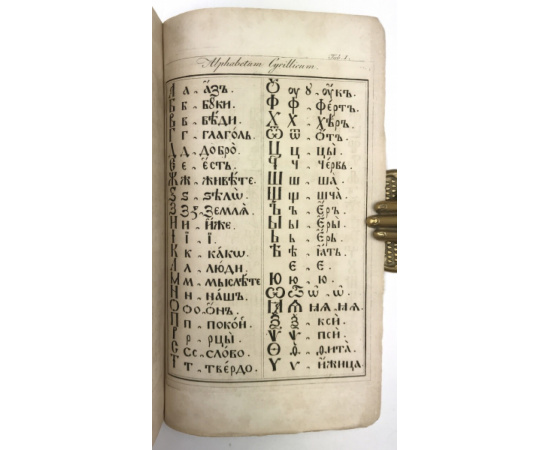 Alphabetum Cyrillicum.
Tab. 1.
А а - а҆́зъ.
Б б - бꙋ́ки.
В в - вѣ́ди.
Г г - глаго́ль.
Д д - добро̀.
Є е - є҆́сть.
Ж ж - живѣ́те.
Ѕ ѕ - ѕѣлѡ̀.
З з - землѧ̀.
И и - и҆́же.
І і - і҆̀.
К к - ка́кѡ.
Л л - лю́ди.
М м - мыслѣ́те
Н н - на́шъ.
О о - ѻ҆́нъ.
П п - поко́й.
Р р - рцы̀.
С с - сло́во.
Т т - тве́рдо.
Ꙋ ѹ ꙋ - ѹ҆́къ.
Ф ф - фе́ртъ.
Х х - хѣ́ръ.
Ѿ ѿ - ѿъ.
Ц ц - цы̀.
Ч ч - че́рвь.
Ш ш - ша̀.
Щ щ - шча̀.
Ъ ъ - є҆́ръ.
Ы ы - є҆ры̀.
Ь ь - є҆́рь.
Ѣ ѣ - ꙗ҆́ть.
Є - Є.
Ю ю - ю.
Ѡ Ѽ ѡ - ѡ.
Ꙗ Ѧ ꙗ - ѧ.
Ѯ ѯ - ксѝ.
Ѱ ѱ - псѝ.
Ѳ ѳ - ѳита̀.
Ѵ ѵ - и҆́жица